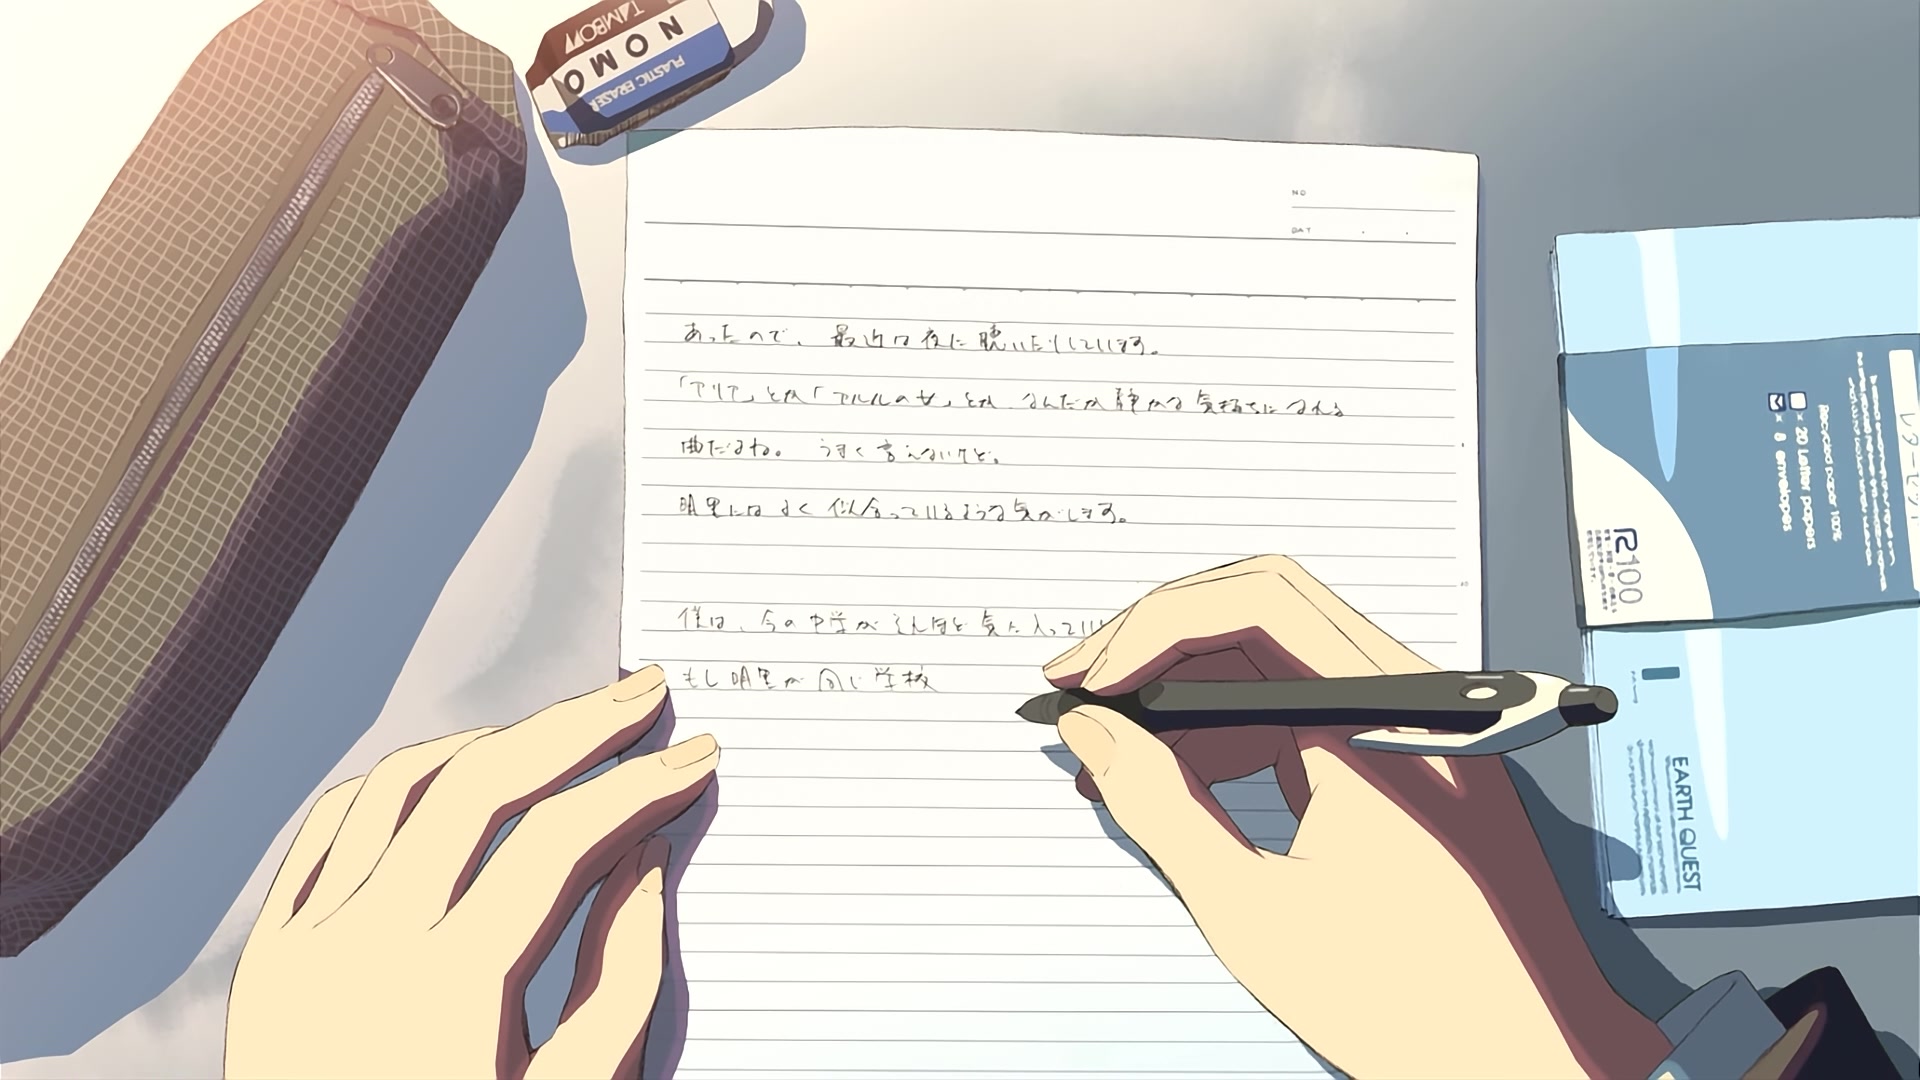 TAMBOW
NOMO
PLASTIC ERASER
NO
DAT
あったので、最近は夜に聴いたりしています。
「アリア」とか「アルルの女」とか、なんだか静かな気持ちになれる
曲だよね。 うまく言えないけど。
明里にはよく似合っているような気がします。
僕は、今の中学がそれほど気に入ってい
もし明里が同じ学校
レターセット
Recycled paper 100%
20 Letter papers
8 envelopes
R100
EARTH QUEST